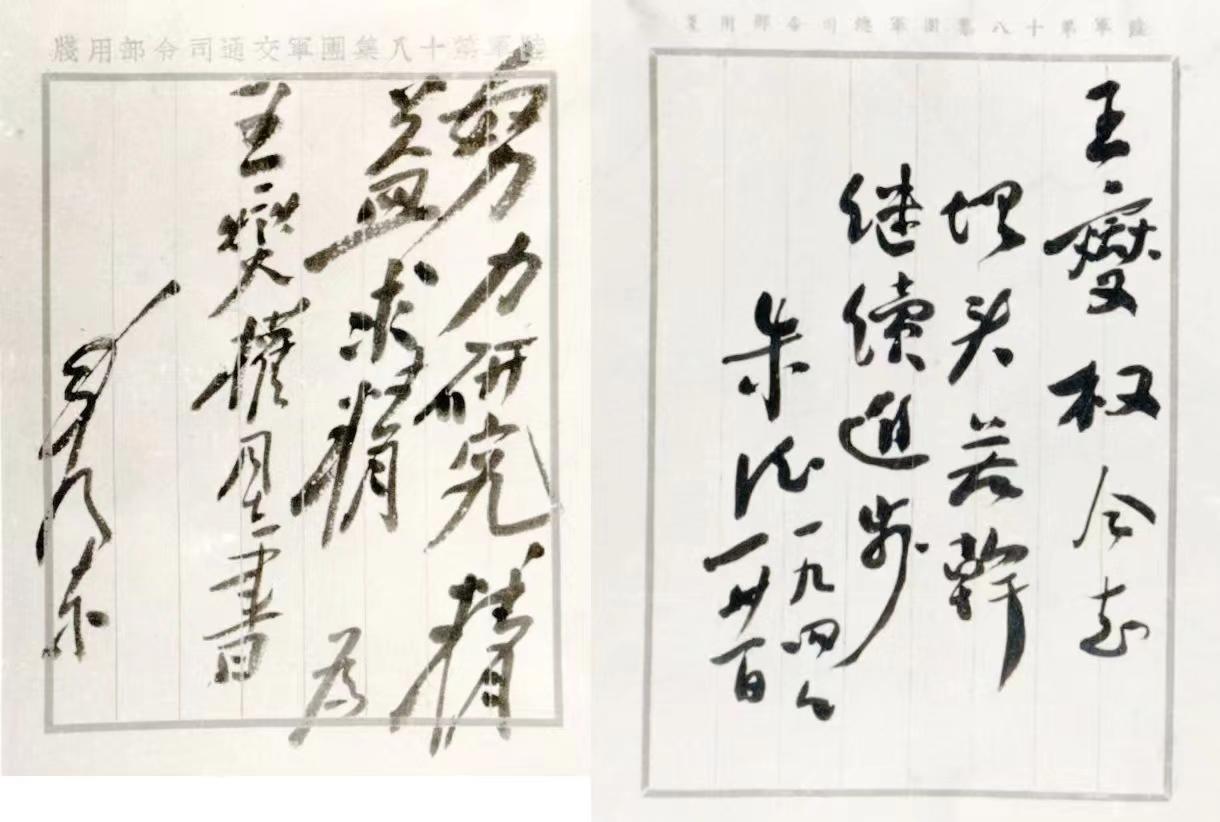 陸軍第十八集團軍交通司令部用牋
努力研究,精
益求精 為
王燮權同志書
毛泽东
陸軍第十八集團軍總司令部用箋
王燮权同志
埋头苦幹
继续進步
朱德
一九四
一廿一日